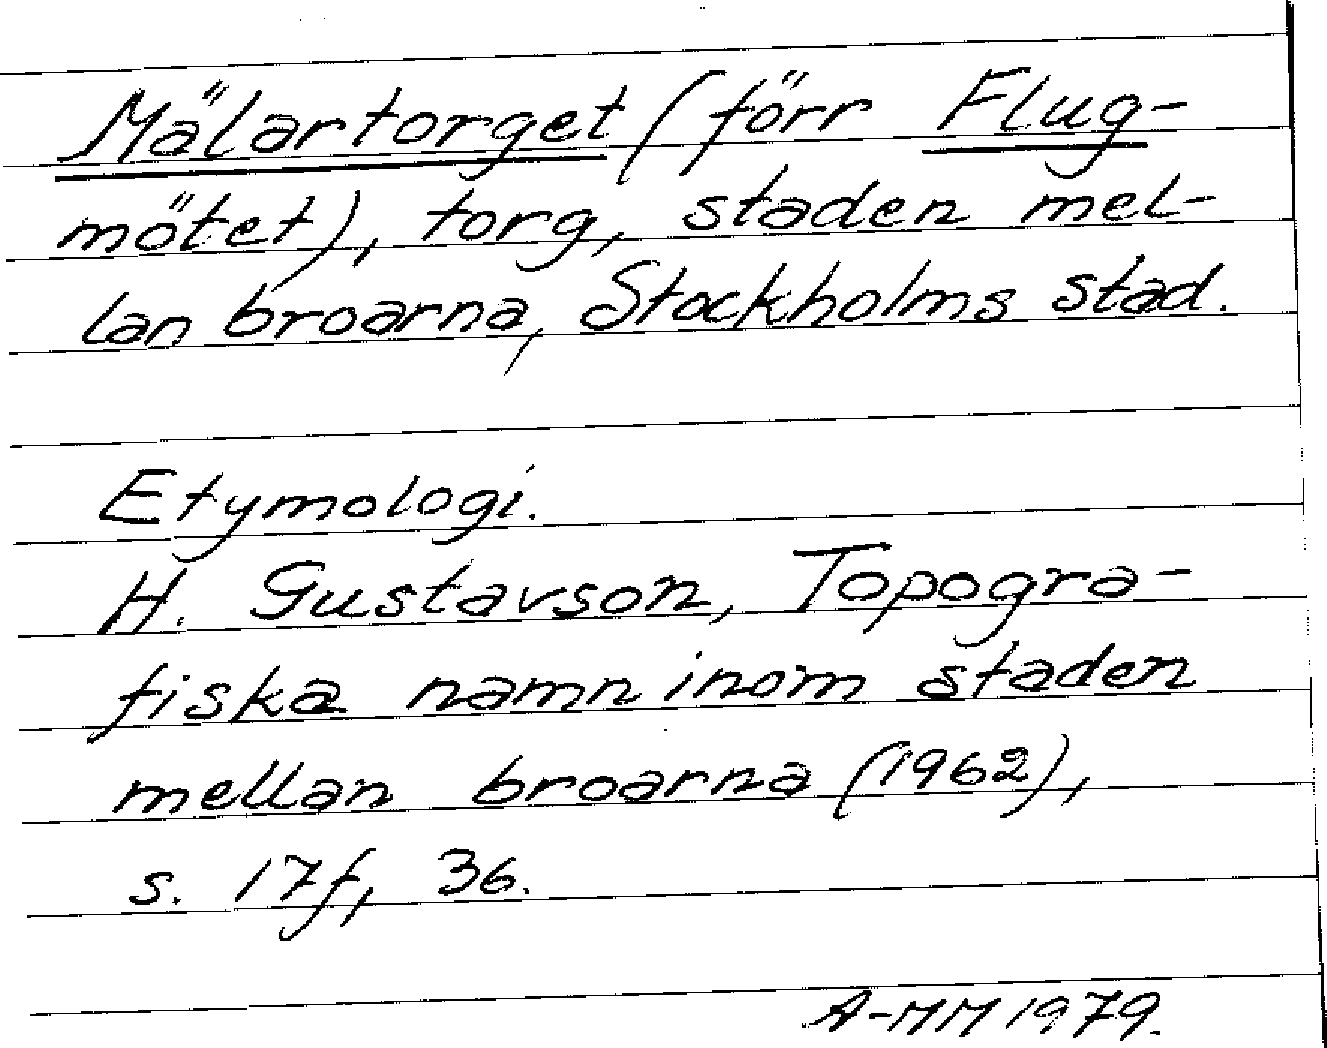 Mälartorget (förr Flug-
mötet), torg, staden mel-
lan broarna, Stockholms stad.
Etymologi.
H. Gustavson, Topogra-
fiska namn inom staden
mellan broarna (1962),
s. 17f, 36.
A-MM 1979.